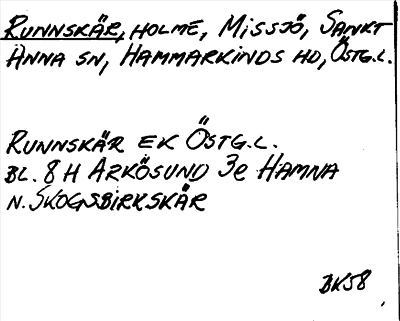 RUNNSKÄR, HOLME, MISSJÖ, SANKT
ANNA SN, HAMMARKINDS HD, ÖSTG.L.
RUNNSKÄR EK ÖSTG.L.
BL. 8 H ARKÖSUND 3e HAMNA
N. SKOGSBIRKSKÄR
BK58